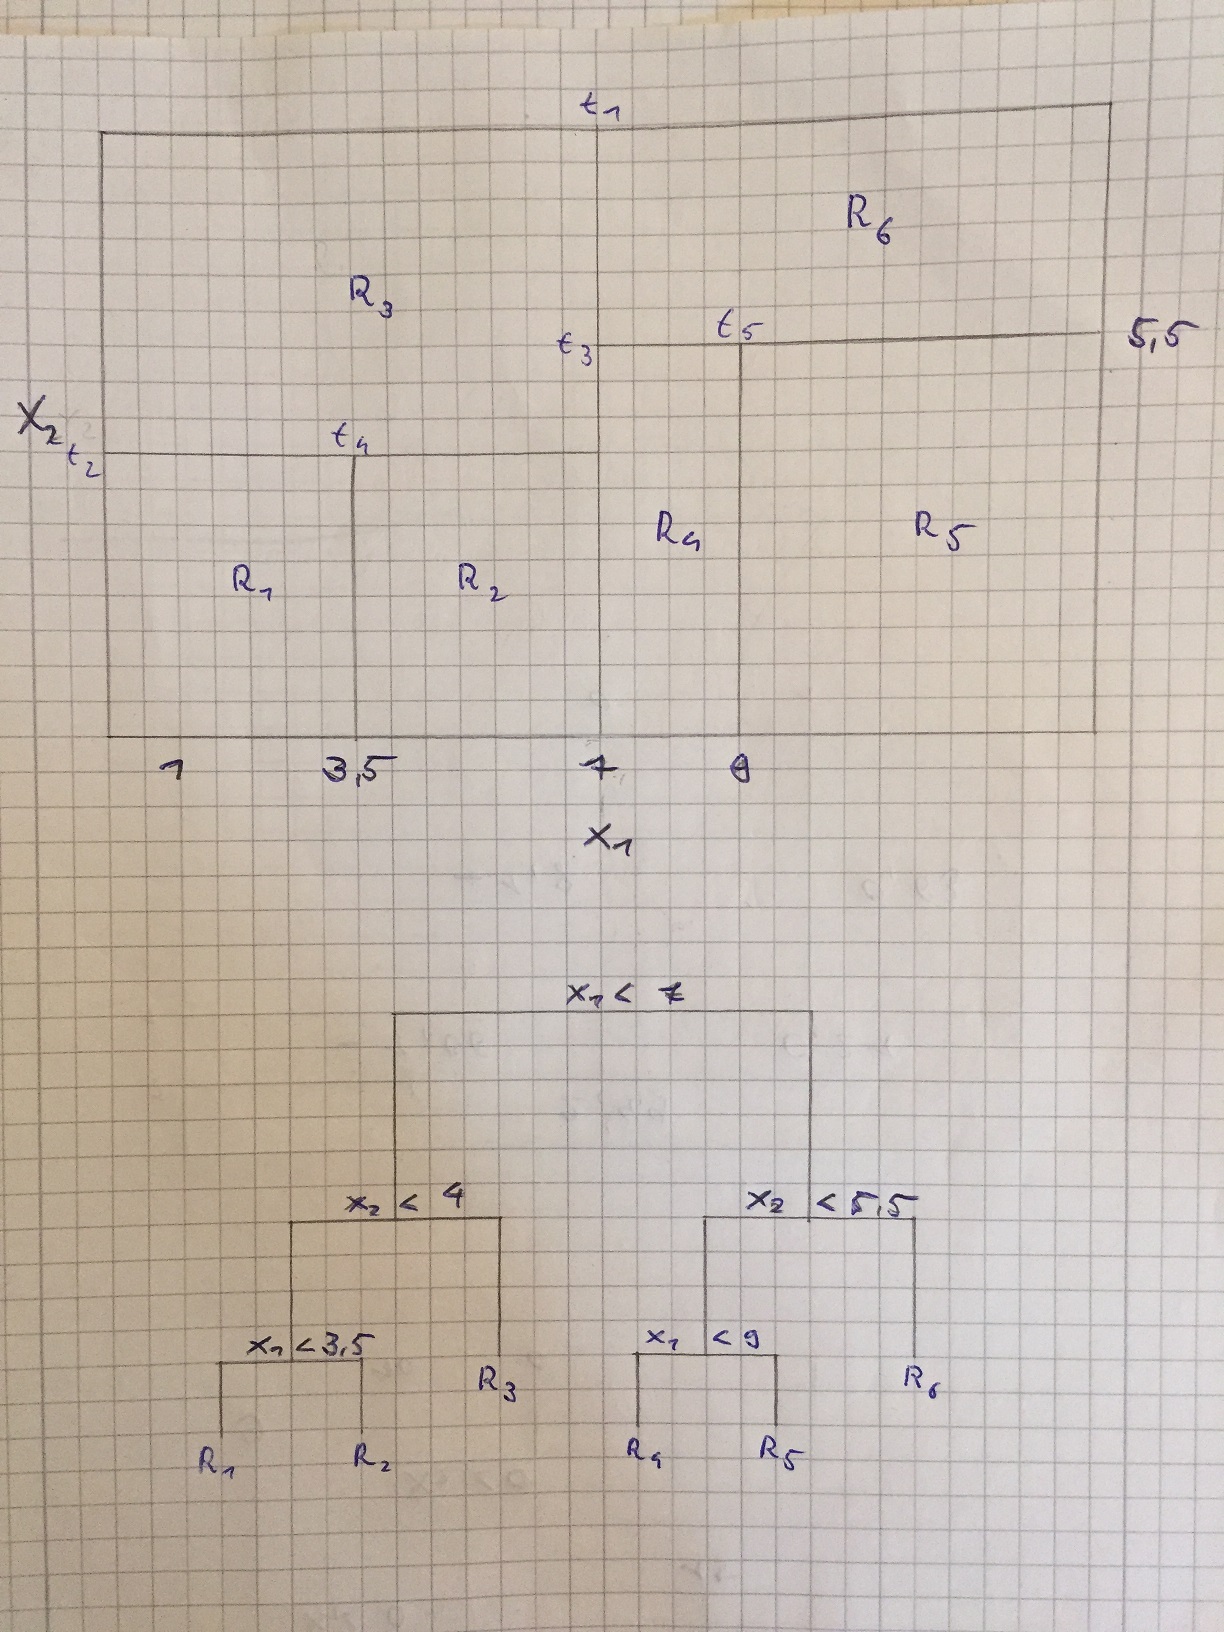 t₁
R₆
R₃
t₃ t₅ 5,5
X₂ t₂ t₄
R₄ R₅
R₁ R₂
1 3,5 7 9
X₁
x₁ < 7
x₂ < 4 x₂ < 5,5
x₁ < 3,5 x₁ < 9
R₃ R₆
R₁ R₂ R₄ R₅